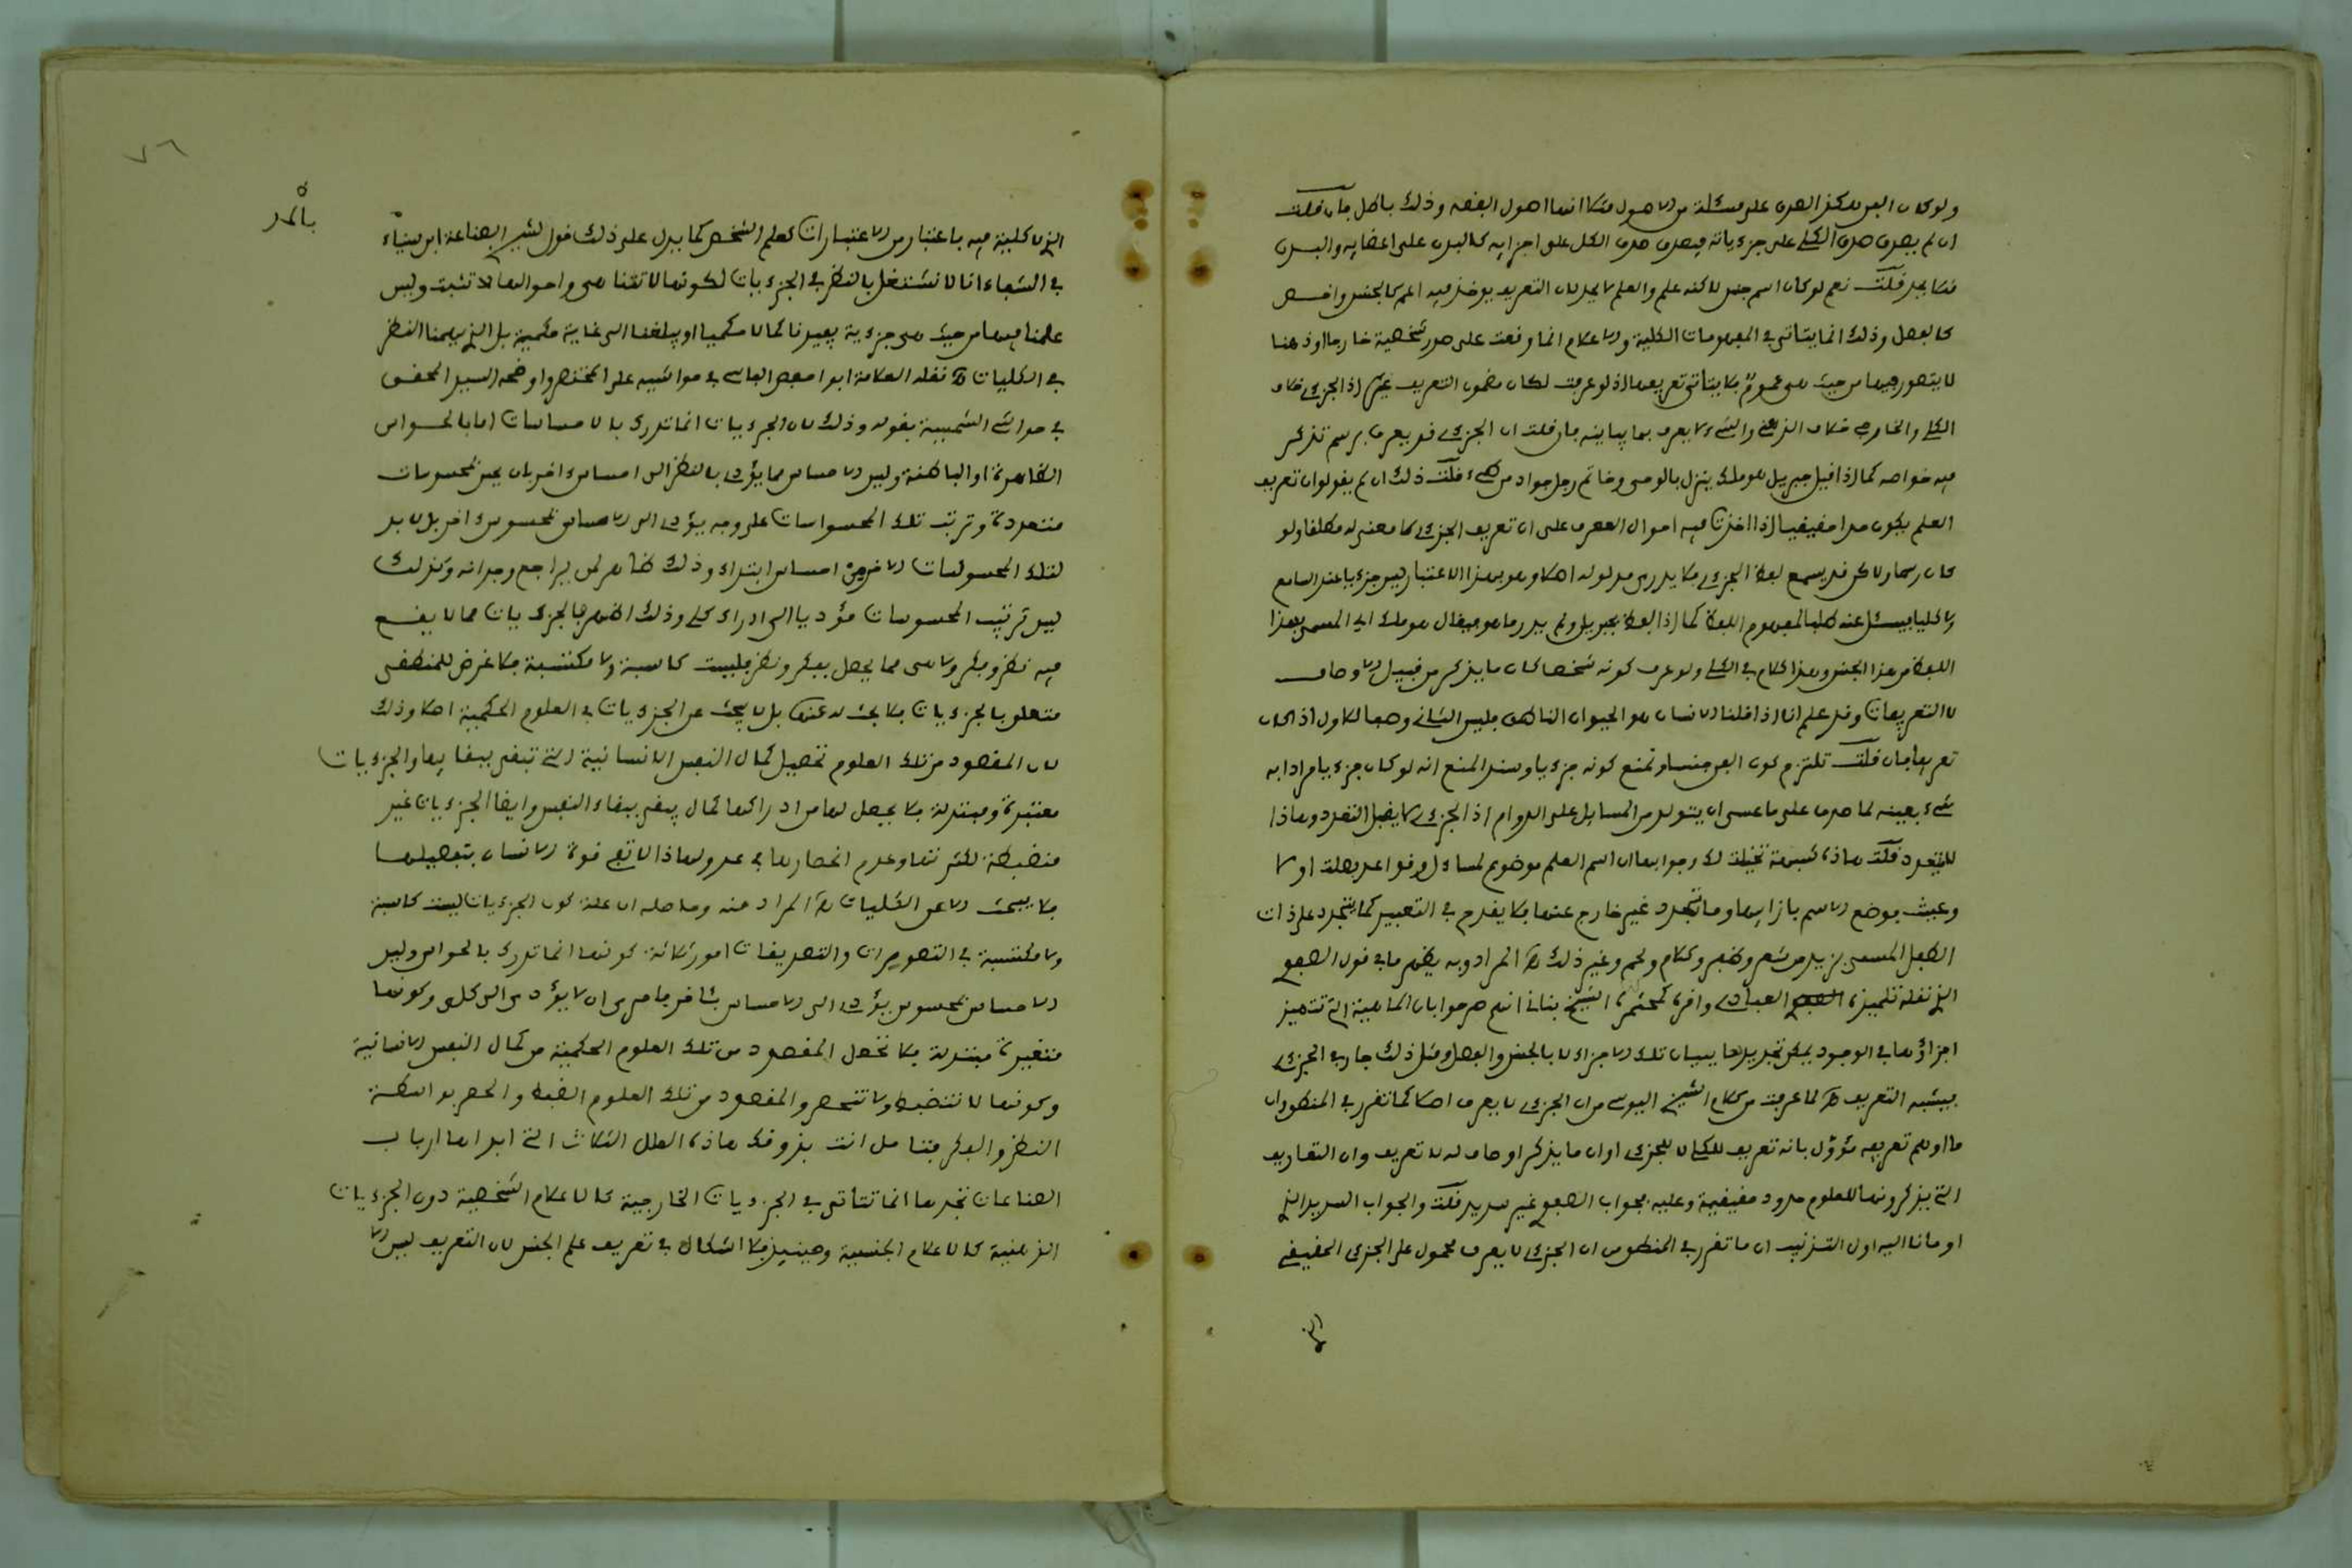 ولو كان الفن لاكن الصدق على مسئلة من الاصول مثلا انها اصول الفقه وذلك باطل فان قلت
ان لم يصدق صدق الكلي على جزءياته فيصدق صدق الكل على اجزايه كالبدن على اعضايه والبدن
مثلا يحد قلت نعم لو كان اسم جنس لاكنه علم والعلم لا يحد لان التعريف يوخذ فيه اعم كالجنس واخص
كالفصل وذلك انما يتاتى في المفهومات الكلية والاعلام انما وقعت على صور شخصية خارجا او ذهنا
لا يتصور فيها من حيث هي عموم فلا يتاتى تعريفها اذ لو عرفت لكان مضمون التعريف غير اذ الجزءي خلاف
الكلي والخارجي خلاف الذهني والشيء لا يعرف بما يباينه فان قلت ان الجزءي قد يعرف برسم تذكر
فيه خواصه كما اذا قيل جبريل هو ملك ينزل بالوحي وحاتم رجل جواد من طيء قلت ذلك ان لم يقولوا ان تعريف
العلم يكون حدا حقيقيا اذا اخذت فيه احوال المعرف على ان تعريف الجزءي لا معنى له مطلقا ولو
كان رسما ولاكن قد يسمع لفظ الجزءي فلا يدرى مدلوله اصلا وهو بهذا الاعتبار ليس جزءيا عند السامع
ولا كليا فيسئل عنه طلبا لمفهوم اللفظ كما اذا لفظ بجبريل ولم يدر ما هو فيقال هو ملك اي المسمى بهذا
اللفظ من هذا الجنس وهذا كلام في الكلي ولو عرف كونه شخصا كان ما يذكر من قبيل الاوصاف
لا التعريفات وقد علم انا اذا قلنا الانسان هو الحيوان الناطق فليس الثاني وصفا للاول اذا كان
تعريفا فان قلت نلتزم كون الفن جنسا ونمنع كونه جزءيا وسند المنع انه لو كان جزءيا مرادا به
شيء بعينه لما صدق على ما عسى ان يتولد من المسايل على الدوام اذ الجزءي لا يقبل التعدد وهاذا
للتعدد قلت هاذه شبهة تخيلت لك وجوابها ان اسم العلم موضوع لمساءل وقواعد فصلت اولا
وعينت بوضع الاسم بازايها وما تجدد غير خارج عنها فلا يقدح في التعيين كما يتجدد على ذات
الطفل المسمى بزيد من شعر وظفر وكلام ولحم وغير ذلك المراد وبه يظهر ما في قول
الذي نقله تلميذه العبادي واقره كمحشيه الشيخ بناني انهم صرحوا بان الماهية التي تتميز
اجزاؤها في الوجود يمكن تحديدها ببيان تلك الاجزاء لا بالجنس والفصل ومثل ذلك جار في الجزءي
فيشبه التعريف لما عرفت من كلام الشيخ اليوسي من ان الجزءي لا يعرف اصلا كما تقرر في المنطق وان
ما اوهم تعريفه مؤول بانه تعريف للكلي لا للجزءي او ان ما يذكر اوصاف له لا تعريف وان التعاريف
التي يذكرونها للعلوم حدود حقيقية وعليه فجواب غير سديد قلت والجواب السديد الذي
اومانا اليه اول التذنيب ان ما تقرر في المنطق من ان الجزءي لا يعرف محمول على الجزءي الحقيقي
الذي
٧٦
الذي لا كلية فيه باعتبار من الاعتبارات كعلم الشخص كما يدل على ذلك قول شيخ الصناعة ابن سيناء
بالمد
في الشفاء انا لا نشتغل بالنظر في الجزءيات لكونها لا تتناهى واحوالها لا تثبت وليس
علمنا فيها من حيث هي جزءية يفيدنا كمالا حكميا او يبلغنا الى غاية حكمية بل الذي يهمنا النظر
في الكليات نقله العلامة ابو حفص الفاسي في حواشيه على المختصر واوضحه السيد المحقق
في حواشي الشمسية بقوله وذلك لان الجزءيات انما تدرك بالاحساسات اما بالحواس
الظاهرة او الباطنة وليس الاحساس مما يؤدي بالنظر الى احساس ءاخر بان يحس بمحسوسات
متعددة وترتب تلك المحسوسات على وجه يؤدي الى الاحساس بمحسوس ءاخر بل لا بد
لتلك المحسوسات الاخر من احساس ابتداء وذلك ظاهر لمن يراجع وجدانه وكذلك
ليس ترتيب المحسوسات مؤديا الى ادراك كلي وذلك اظهر فالجزءيات مما لا يقع
فيه نظر وفكر ولا هي مما يحصل بفكر ونظر فليست كاسبة ولا مكتسبة فلا غرض للمنطقي
متعلق بالجزءيات فلا بحث له عنها بل لا يبحث عن الجزءيات في العلوم الحكمية اصلا وذلك
لان المقصود من تلك العلوم تحصيل كمال النفس الانسانية التي تبقى ببقايها والجزءيات
متغيرة ومتبدلة فلا يحصل لها من ادراكها كمال يبقى ببقاء النفس وايضا الجزءيات غير
منضبطة لكثرتها وعدم انحصارها في عدد ولهاذا لا تفي قوة الانسان بتفصيلها
فلا يبحث الا عن الكليات المراد منه وحاصله ان علة كون الجزءيات ليست كاسبة
ولا مكتسبة في التصورات والتصديقات امور ثلاثة كونها انما تدرك بالحواس وليس
الاحساس بمحسوس يؤدي الى الاحساس بئاخر فاحرى ان لا يؤدي الى كلي وكونها
متغيرة متبدلة فلا تحصل المقصود من تلك العلوم الحكمية من كمال النفس الانسانية
وكونها لا تنضبط ولا تنحصر والمقصود من تلك العلوم الضبط والحصر بواسطة
النظر والفكر فتامل انت بذوقك هاذه العلل الثلاث التي ابداها ارباب
الصناعات تجدها انما تتاتى في الجزءيات الخارجية كالاعلام الشخصية دون الجزءيات
الذهنية كالاعلام الجنسية وحينيذ فلا اشكال في تعريف علم الجنس لان التعريف ليس الا